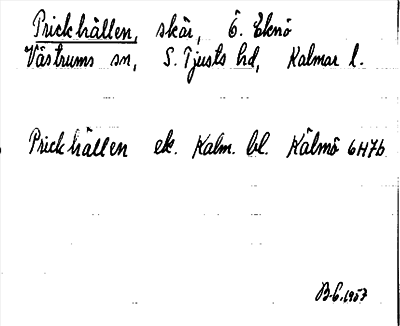 Prickhällen, skär, Ö. Eknö
Västrums sn, S. Tjusts hd, Kalmar l.
Prickhällen ek. Kalm. bl. Kälmö 6H7b
B.G. 1957